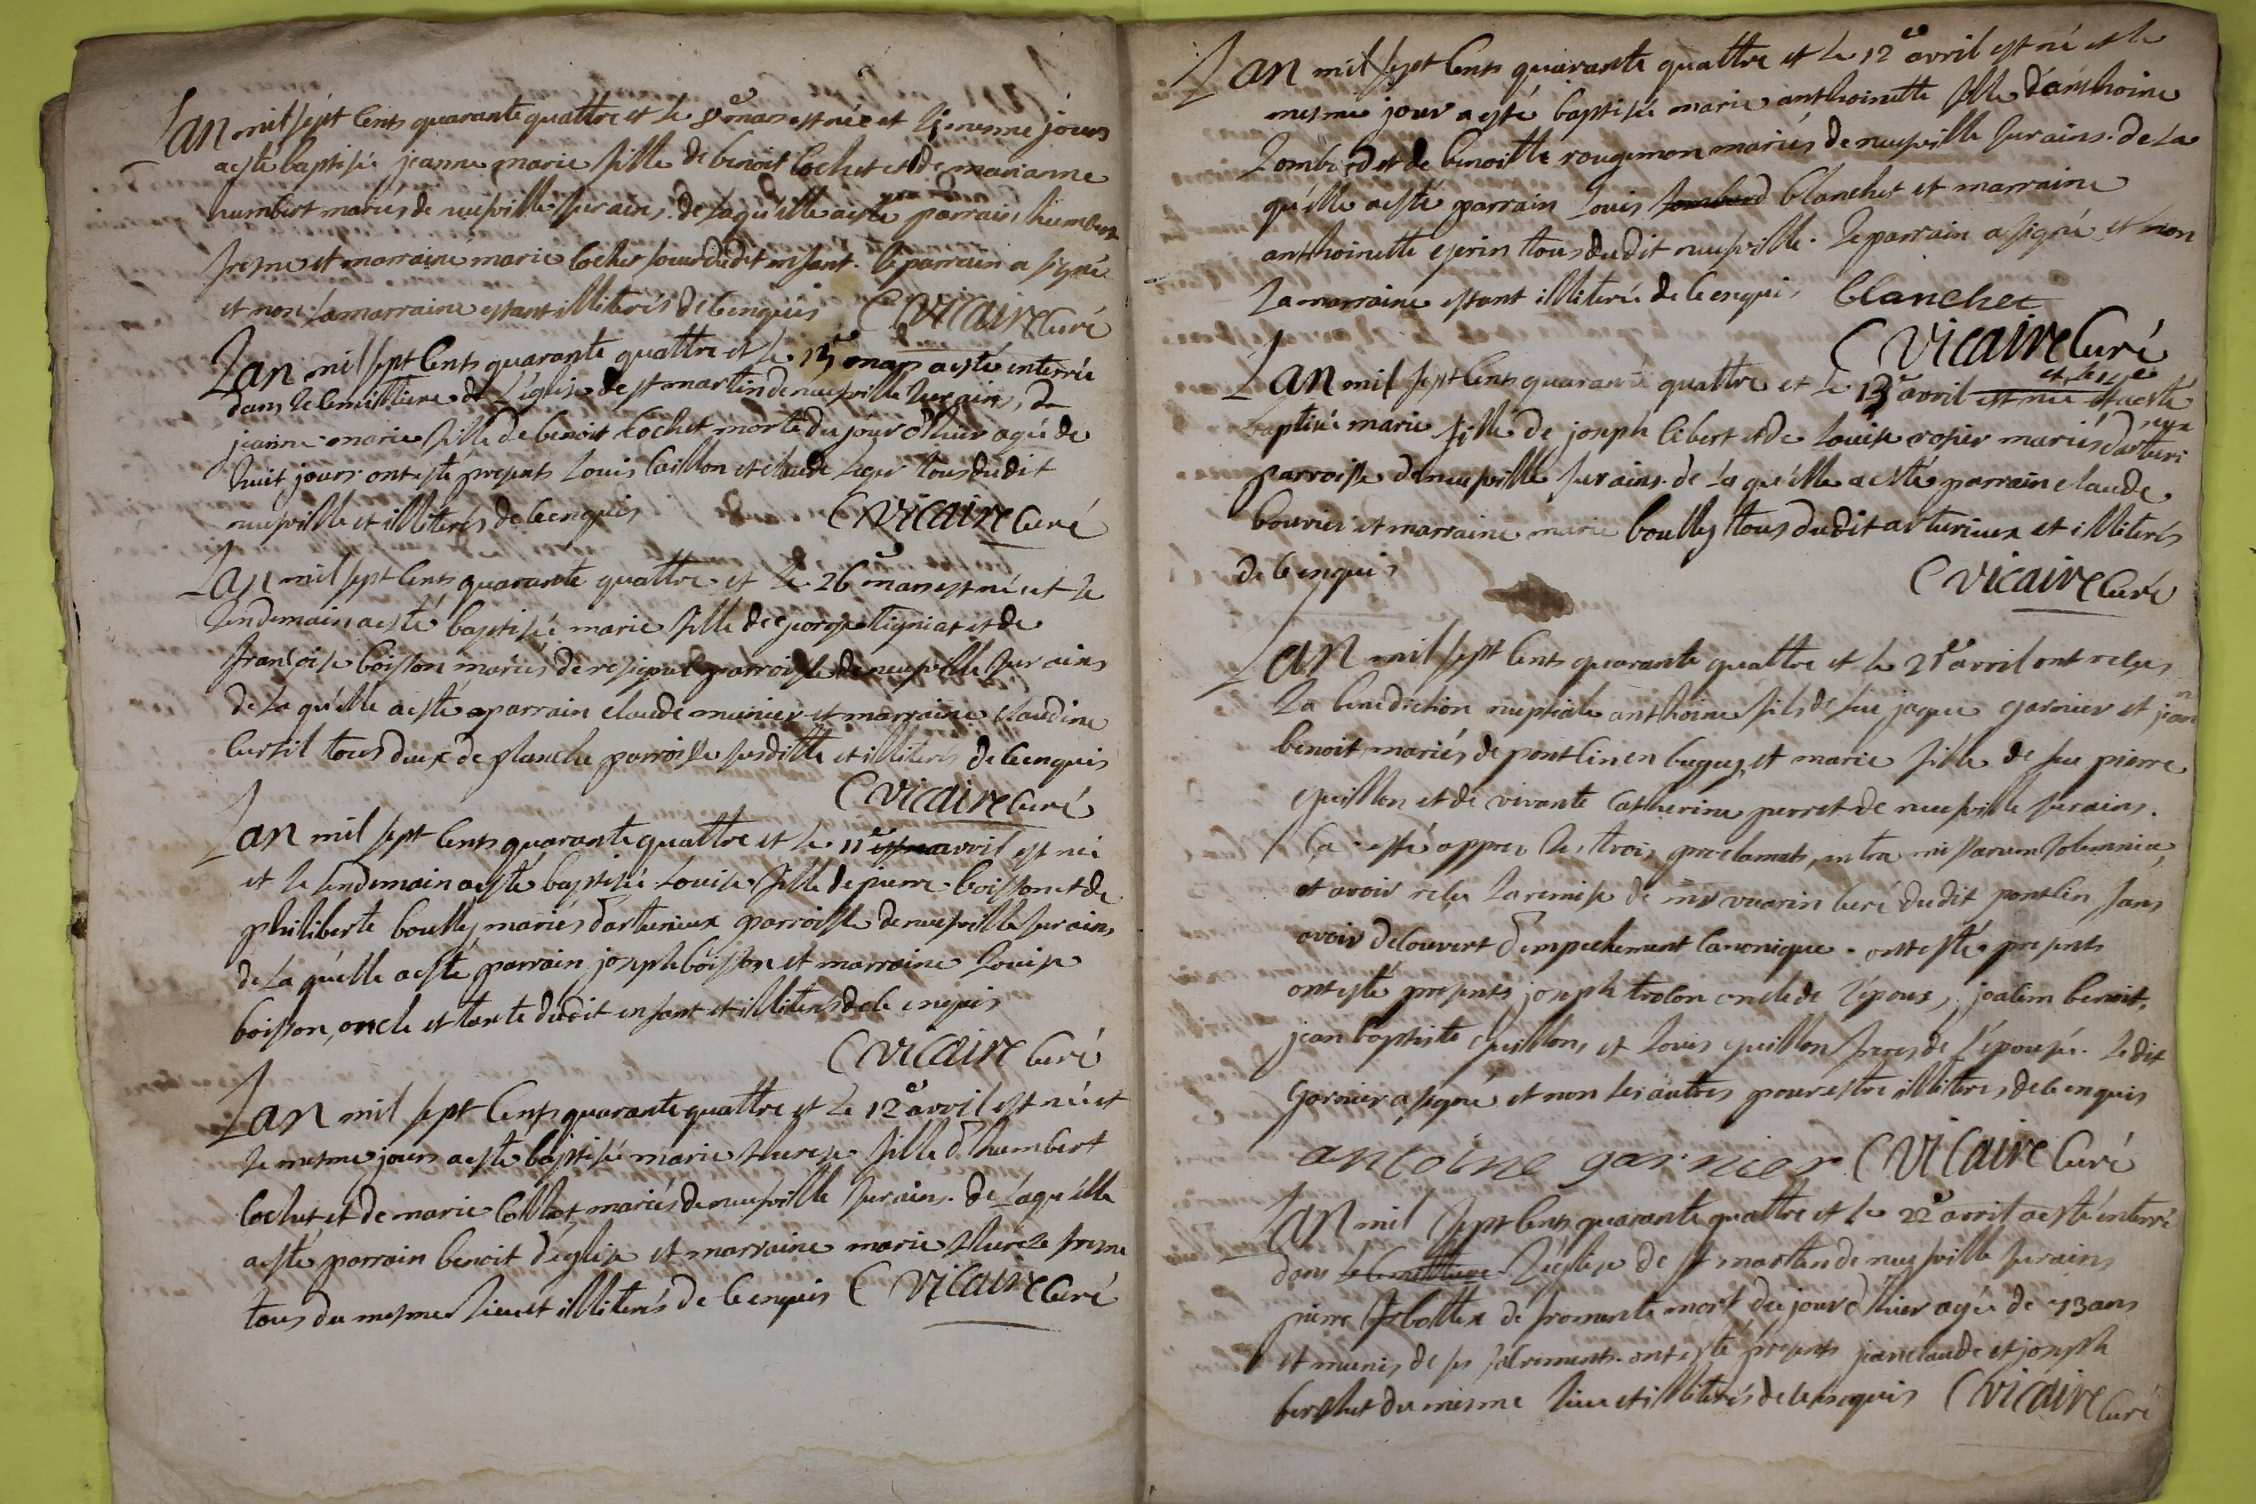 Lan mil sept cents quarante quattre et le 8e mars est née et le mesme jours
aesté baptisée jeanne marie fille de benoit Cochet et de marianne
humbert mariés de neufville sur ains. de laqu'elle aesté parrain, humbert
fresne et marraine marie Cochet soeur dudit enfant. le parrain a signé
et non la marraine estant illiterés de ce enquis C Vicaire Curé
Lan mil sept cents quarante quattre et le 15e mars aesté enterrée
dans le cemittiere de l'église de st martin de neufville sur ains,
jeanne marie fille de benoit Cochet morte du jour d'hier agée de
huit jours. ont esté presents Louis Caillon et claude Leger tous dudit
neufville et illiterés de ce enquis C Vicaire Curé
Lan mil sept cents quarante quattre et le 26e mars est née et le
lendemain aesté baptisée marie fille de george tigniat et de
françoise boisson mariés de resipel parroisse de neufville sur ains
de laqu'elle aesté parrain claude munier et marraine claudine
Curtil tous deux de planche parroisse susditte et illiterés de ce enquis
C Vicaire Curé
Lan mil sept cents quarante quattre et le 11e avril est née
et le lendemain aesté baptisée Louise fille de pierre boisson et de
philiberte boulley mariés d'arturieux parroisse de neufville sur ains
de laquelle aesté parrain joseph boisson et marraine Louise
boisson, oncle et tante dudit enfant et illiterés de ce enquis
C Vicaire Curé
Lan mil sept cents quarante quattre et le 12e avril est née et
le mesme jours aesté baptisée marie therese fille d'humbert
Cochet et de marie Collet mariés de neufville sur ains. de laqu'elle
aesté parrain benoit d'église et marraine marie thérèze fresne
tous du mesme lieu et illiterés de ce enquis C Vicaire Curé
Lan mil sept cents quarante quattre et le 12e avril est né et le
mesme jour aesté baptisée marie anthoinette fille d'anthoine
Lombard et de benoitte rougemon mariés de neufville sur ains. de la
qu'elle aesté parrain Louis Lombard blanchet et marraine
anthoinette ejerin tous dudit neufville. le parrain a signé et non
la marraine estant illiterée de ce enquis blanchet
C Vicaire Curé
Lan mil sept cents quarante quattre et le 13e avril est née et aesté
baptisée marie fille de joseph Cibert et de Louise rosier mariés d'arturieux
parroisse de neufville sur ains. de laqu'elle aesté parrain claude
bouvier et marraine marie boulley tous dudit arturieux et illiterés
de ce enquis C Vicaire Curé
Lan mil sept cents quarante quattre et le 21e avril ont reçus
la benediction nuptiale anthoine fils de feu jaque garnier et jeanne
benoit mariés de pontlin en bugey, et marie fille de feu pierre
guillon et de vivante Catherine perret de neufville sur ains.
Ca esté appres les trois proclamats, intra missarum solemnia,
et avoir reçu la remise de mr vuarin Curé dudit pontlin sans
avoir découvert d'empechement Canonique. ont esté presents
ont esté presents joseph trolon oncle de l'epoux, joakim benoit,
jean baptiste guillon, et Louis guillon freres de l'épouse. ledit
garnier a signé et non les autres pour estre illiteres de ce enquis
antoine garnier C Vicaire Curé
Lan mil sept cents quarante quattre et le 22e avril aesté enterré
dans le cemittiere l'église de st martin de neufville sur ains
pierre de fromente mort du jour d'hier agé de 73 ans
et munis de ses sacrements. ont esté presents jean claude et joseph
berthet du mesme lieu et illiterés de ce enquis C Vicaire Curé